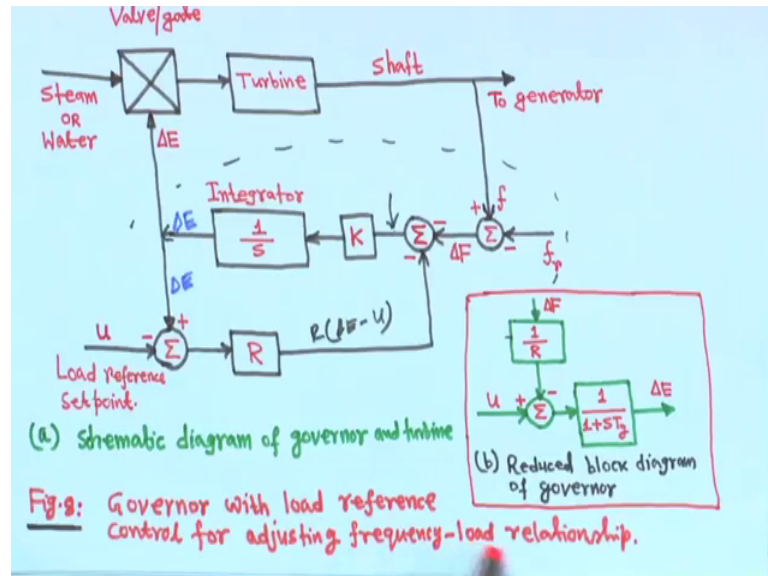 Valve/gate
Steam
OR
Water
Turbine
Shaft
To generator
ΔE
Integrator
ΔE
1/S
K
Σ
ΔF
Σ
+ f
-
f_r
ΔE
u
- +
Σ
R
R(ΔE-U)
Load reference
Setpoint.
(a) Shematic diagram of governor and turbine
ΔF
1/R
u + -
Σ
1/(1+STg)
ΔE
(b) Reduced block diagram
of governor
Fig.8: Governor with load reference
control for adjusting frequency-load relationship.